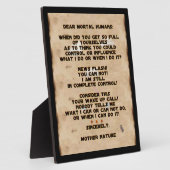 DEAR MORTAL HUMANS:
WHEN DID YOU GET SO FULL
OF YOURSELVES
AS TO THINK YOU COULD
CONTROL OR INFLUENCE
WHAT I DO OR WHEN I DO IT?
NEWS FLASH!
YOU CAN NOT!
I AM STILL
IN COMPLETE CONTROL!
CONSIDER THIS
YOUR WAKE UP CALL!
NOBODY TELLS ME
WHAT I CAN OR CAN NOT DO,
OR WHEN I CAN DO IT!
SINCERELY,
MOTHER NATURE